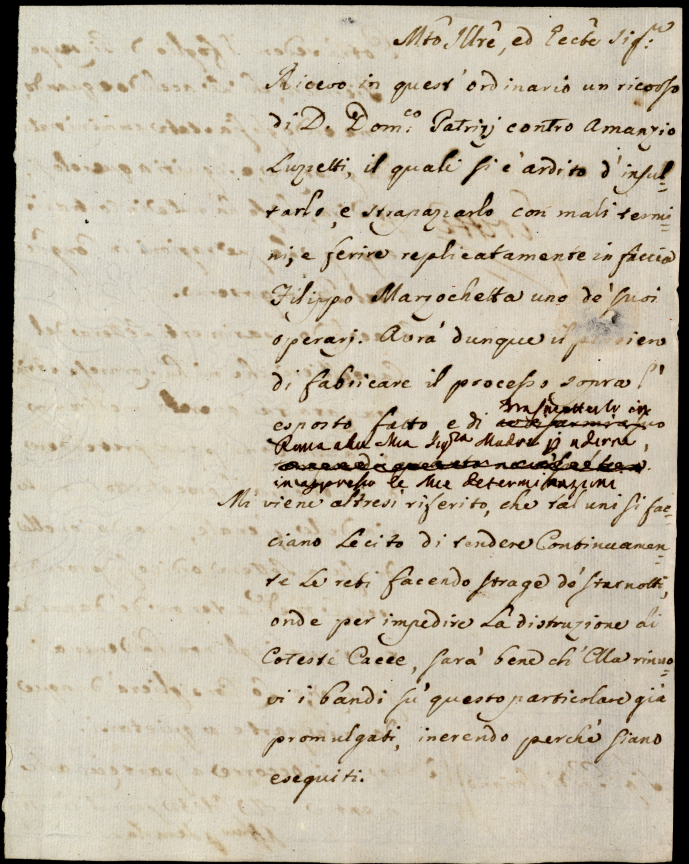 Mto Illre, ed Eccte Sigre
Ricevo in quest' ordinario un ricorso
di D. Domco Patrizj contro Amanzio
Luzzetti, il quali si è ardito d' insul=
tarlo, e strapazzarlo con mali termi=
ni, e ferire replicatamente in faccia
Filippo Marzochetta uno de' suoi
operarj. Avrà dunque il
di fabricare il processo sovra l'
esposto fatto e di trasmetterlo in
Roma alla mia Sigra Madre p udirne,
in appresso le sue determinazioni
Mi viene altresì riferito, che taluni si fac=
ciano lecito di tendere Continuamen=
te le reti facendo strage de' starnotti,
onde per impedire la distruzione di
Coteste Cacce, sarà bene ch' Ella rinuo=
vi i bandi su' questo particolare già
promulgati, inerendo perché siano
eseguiti.